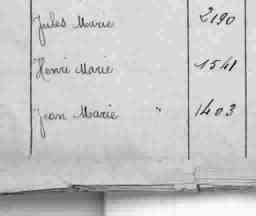 Jules Marie 2190
Henri Marie 1541
Jean Marie " 1403